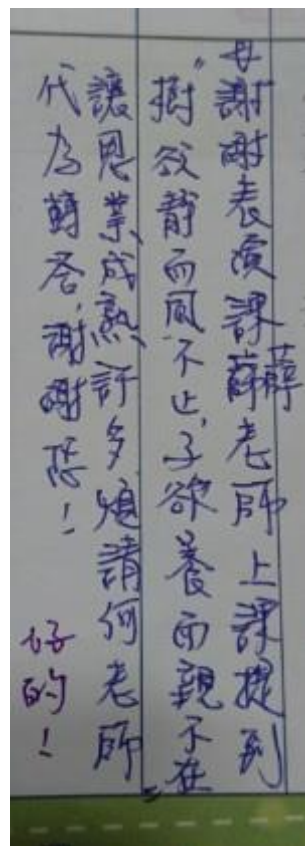 母謝謝表演課薛老師上課提到
"樹欲靜而風不止,子欲養而親不在"
讓恩業成熟許多,煩請何老師
代為轉答,謝謝您!
好的!